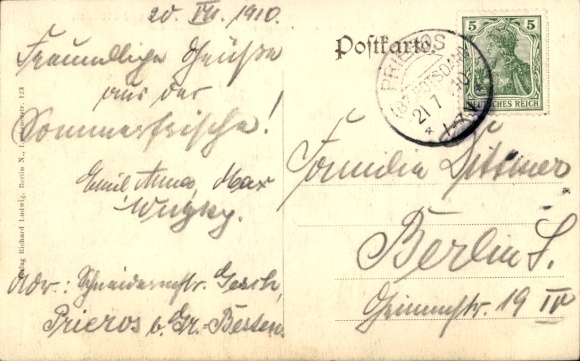 20. VII. 1910.
Freundliche Grüße
aus der
Sommerfrische!
Emil, Anna, Max
Adr.: Schneidermstr. Gesch,
Prieros b. Gr.-Besten.
Postkarte.
PRIEROS
21 7 10
5 5
DEUTSCHES REICH
Familie Dittmer
Berlin S.
Grimmstr. 19 IV
Verlag Richard Ludwig, Berlin N., 123